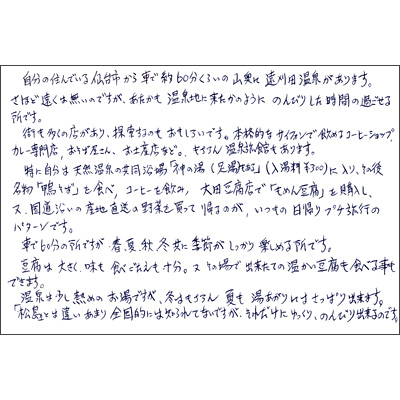 自分の住んでいる仙台市から車で約60分くらいの山奥に遠刈田温泉があります。
さほど遠くは無いのですが、あたかも温泉地に来たかのようにのんびりした時間の過ごせる
所です。
街も多くの店があり、探索するのもおもしろいです。本格的なサイフォンで飲めるコーヒーショップ、
カレー専門店、おそば屋さん、お土産店など。もちろん温泉旅館もあります。
特に自分は天然温泉の共同浴場「神の湯(足湯併設)」(入湯料¥300)に入り、その後
名物「鴨そば」を食べ、コーヒーを飲み、大田豆腐店で「もめん豆腐」を購入し、
又、国道沿いの産地直送の野菜を買って帰るのが、いつもの日帰りプチ旅行の
パターンです。
車で60分の所ですが春、夏、秋、冬共に季節がしっかり楽しめる所です。
豆腐は大きく、味も食べごたえも十分。又その場で出来たての温かい豆腐も食べる事も
できます。
温泉は少し熱めのお湯ですが、冬はもちろん夏も湯あがりはさっぱり出来ます。
「松島」とは違いあまり全国的には知られてないですが、それだけにゆっくり、のんびり出来るのです。